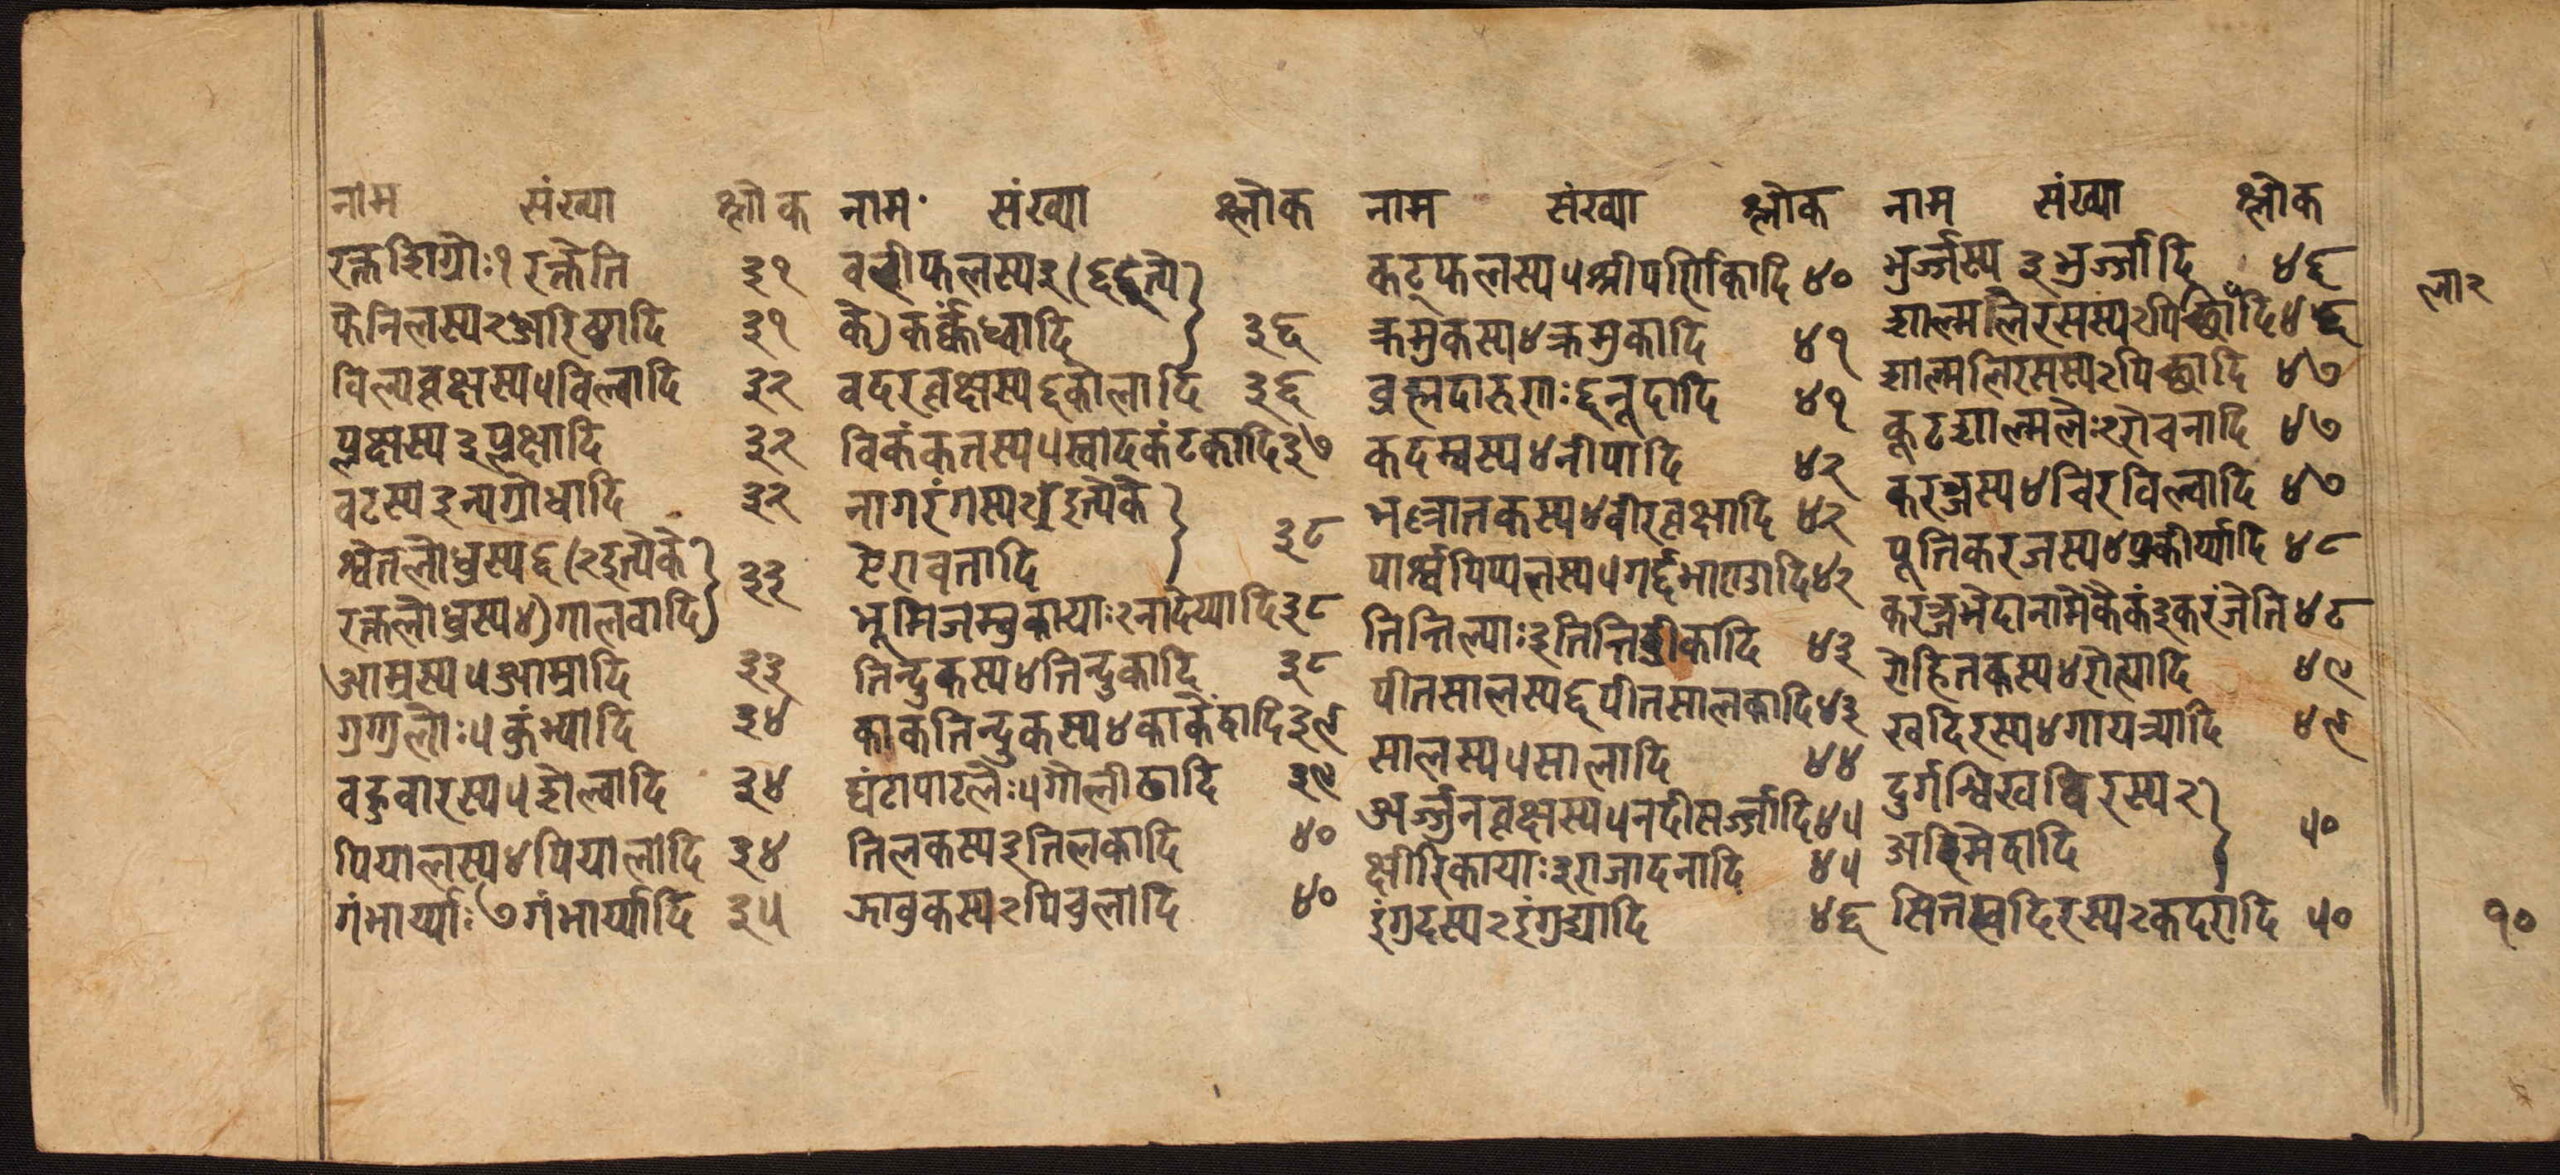 नाम संख्या श्लोक
रक्तशिग्रोः १ रक्तेति ३१
फेनिलस्य २ अरिष्ठादि ३१
विल्ववृक्षस्य ५ विल्वादि ३२
प्लक्षस्य ३ प्लक्षादि ३२
वटस्य ३ न्यग्रोधादि ३२
श्वेतलोध्रस्य ६ (२ इत्येके)
रक्तलोध्रस्य ४) गालवादि ३३
आम्रस्य ५ आम्रादि ३३
गुग्गुलोः ५ कुंभ्यादि ३४
वहुवारस्य ५ शेल्वादि ३४
पियालस्य ४ पियालादि ३४
गंभार्य्याः ७ गंभार्य्यादि ३५
नाम संख्या श्लोक
वदरीफलस्य ३ (६ इत्ये
के) कर्क्कंध्वादि ३६
वदरवृक्षस्य ६ कोलादि ३६
विकंकतस्य ५ स्वादकंटकादि ३७
नागरंगस्य २ इत्येके
ऐरावतादि ३८
भूमिजम्वुकायाः २ नादेय्यादि ३८
तिन्दुकस्य ४ तिन्दुकादि ३८
काकतिन्दुकस्य ४ काकेंद्वादि ३९
घंटापाटलेः ५ गोलीढादि ३९
तिलकस्य ३ तिलकादि ४०
झावुकस्य २ पिचुलादि ४०
नाम संख्या श्लोक
कट्फलस्य ५ श्रीपर्णिकादि ४०
क्रमुकस्य ४ क्रमुकादि ४१
व्रह्मदारुणः ६ नूदादि ४१
कदम्वस्य ४ नीपादि ४२
भल्लातकस्य ४ वीरवृक्षादि ४२
पार्श्वपिप्पलस्य ५ गर्द्दभाण्डादि ४२
तिन्तिल्याः ३ तिन्तिडीकादि ४३
पीतसालस्य ६ पीतसालकादि ४३
सालस्य ५ सालादि ४४
अर्ज्जुनवृक्षस्य ५ नदीसर्ज्जादि ४५
क्षीरिकायाः ३ राजादनादि ४५
इंगुदस्य २ इंगुद्यादि ४६
नाम संख्या श्लोक
भुर्ज्जस्य ३ भुर्ज्जादि ४६
शाल्मलिरसस्य २ पिच्छादि ४६
शाल्मलिरसस्य २ पिच्छादि ४७
कूटशाल्मलेः २ रोचनादि ४७
करञ्जस्य ४ चिरविल्वादि ४७
पूतिकरजस्य ४ प्रकीर्य्यादि ४८
करञ्जभेदानामेकैकं ३ करंजेति ४८
रोहितकस्य ४ रोह्यादि ४९
खदिरस्य ४ गायत्र्यादि ४९
दुर्गन्धिखदिरस्य २
अरिमेदादि ५०
सितखदिरस्य २ कदरादि ५०
ला २
१०